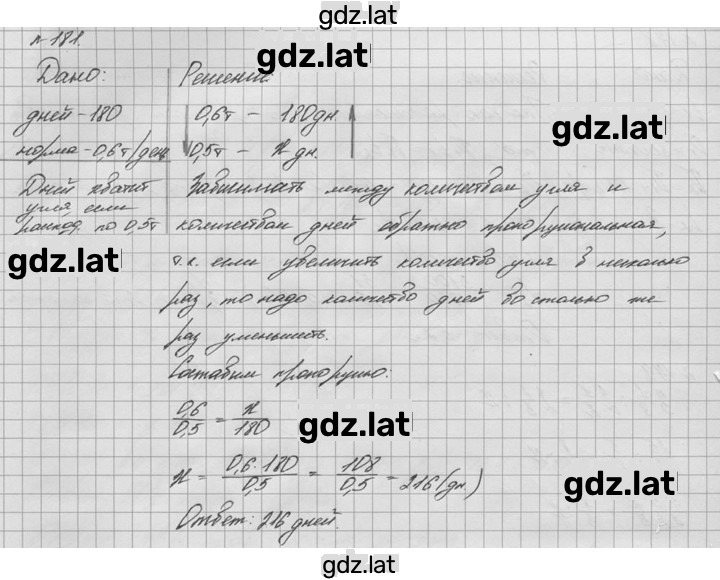 gdz.lat
№ 181.
gdz.lat
Дано: Решение:
дней - 180 0,6т - 180дн.
gdz.lat
норма - 0,6т/день 0,5т - x дн.
Дней хватит Зависимость между количеством угля и
угля, если
расход по 0,5т количеством дней обратно пропорциональная,
gdz.lat
т.к. если увеличить количество угля в несколько
раз, то надо количество дней во столько же
раз уменьшить.
Составим пропорцию:
0,6/0,5 = x/180
gdz.lat
x = 0,6·180/0,5 = 108/0,5 = 216 (дн.)
gdz.lat
Ответ: 216 дней.
gdz.lat